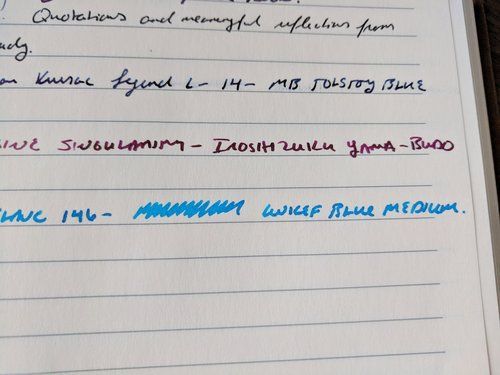 Quotations and meaningful reflections from
udy.
Legend L - 14 - MB TOLSTOY BLUE
INE SINGULARITY - IROSHIZUKU YAMA-BUDO
LANC 146 - UNICEF BLUE MEDIUM.